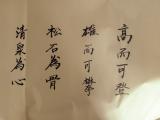 高而可登
雄而可攀
松石為骨
清泉為心